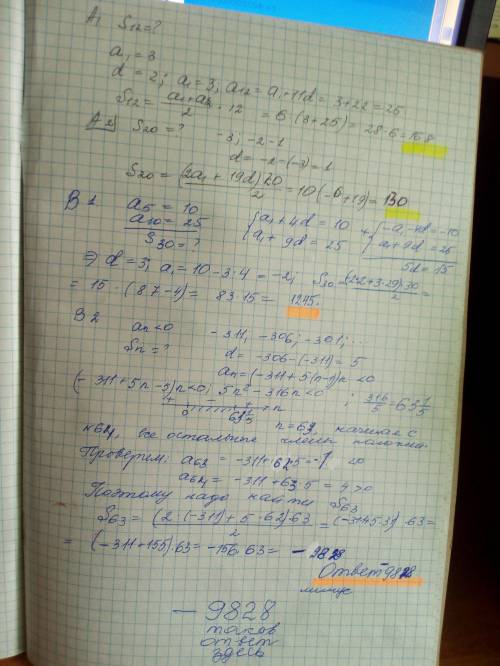 A1 S12=?
a1 = 3
d = 2; a1 = 3, a12 = a1+11d = 3+22 = 25
S12 = (a1+a12)/2 · 12 = 6·(3+25) = 28·6 = 168
A2) S20 = ? -3; -2 -1
d = -2-(-3) = 1
S20 = (2a1 + 19d)20/2 = 10(-6+19) = 130
B1 a5 = 10 {a1 + 4d = 10 + {-a1-4d = -10
a10 = 25 a1 + 9d = 25 a1+9d = 25
S30 = ? 5d = 15
⇒ d = 3; a1 = 10-3·4 = -2; S30 = (-2·2+3·29)·30/2 =
= 15·(87-4) = 83·15 = 1245.
B2 an<0 -311, -306; -301; ...
Sn = ? d = -306-(-311) = 5
an = (-311+5(n-1))n <0
(-311+5n-5)n<0; 5n²-316n<0 316/5 = 63 1/5
+ - + n
0 63 1/5 n = 63, начиная с
n 64, все остальные члены положит.
Проверим: a63 = -311+62·5 = -1 <0
a64 = -311+63·5 = 4>0
Поэтому надо найти S63
S63 = (2·(-311)+5·62)·63/2 = (-311+5·31)·63=
= (-311+155)·63 = -156·63 = -9828
Ответ -9828
минус
- 9828
таков
ответ
здесь